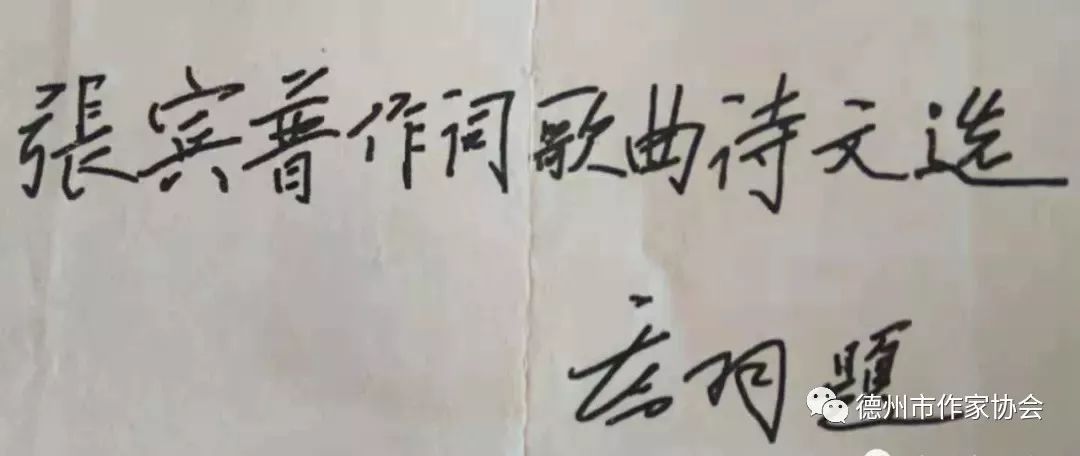 張宾普作词歌曲诗文选
乔羽題
德州市作家协会